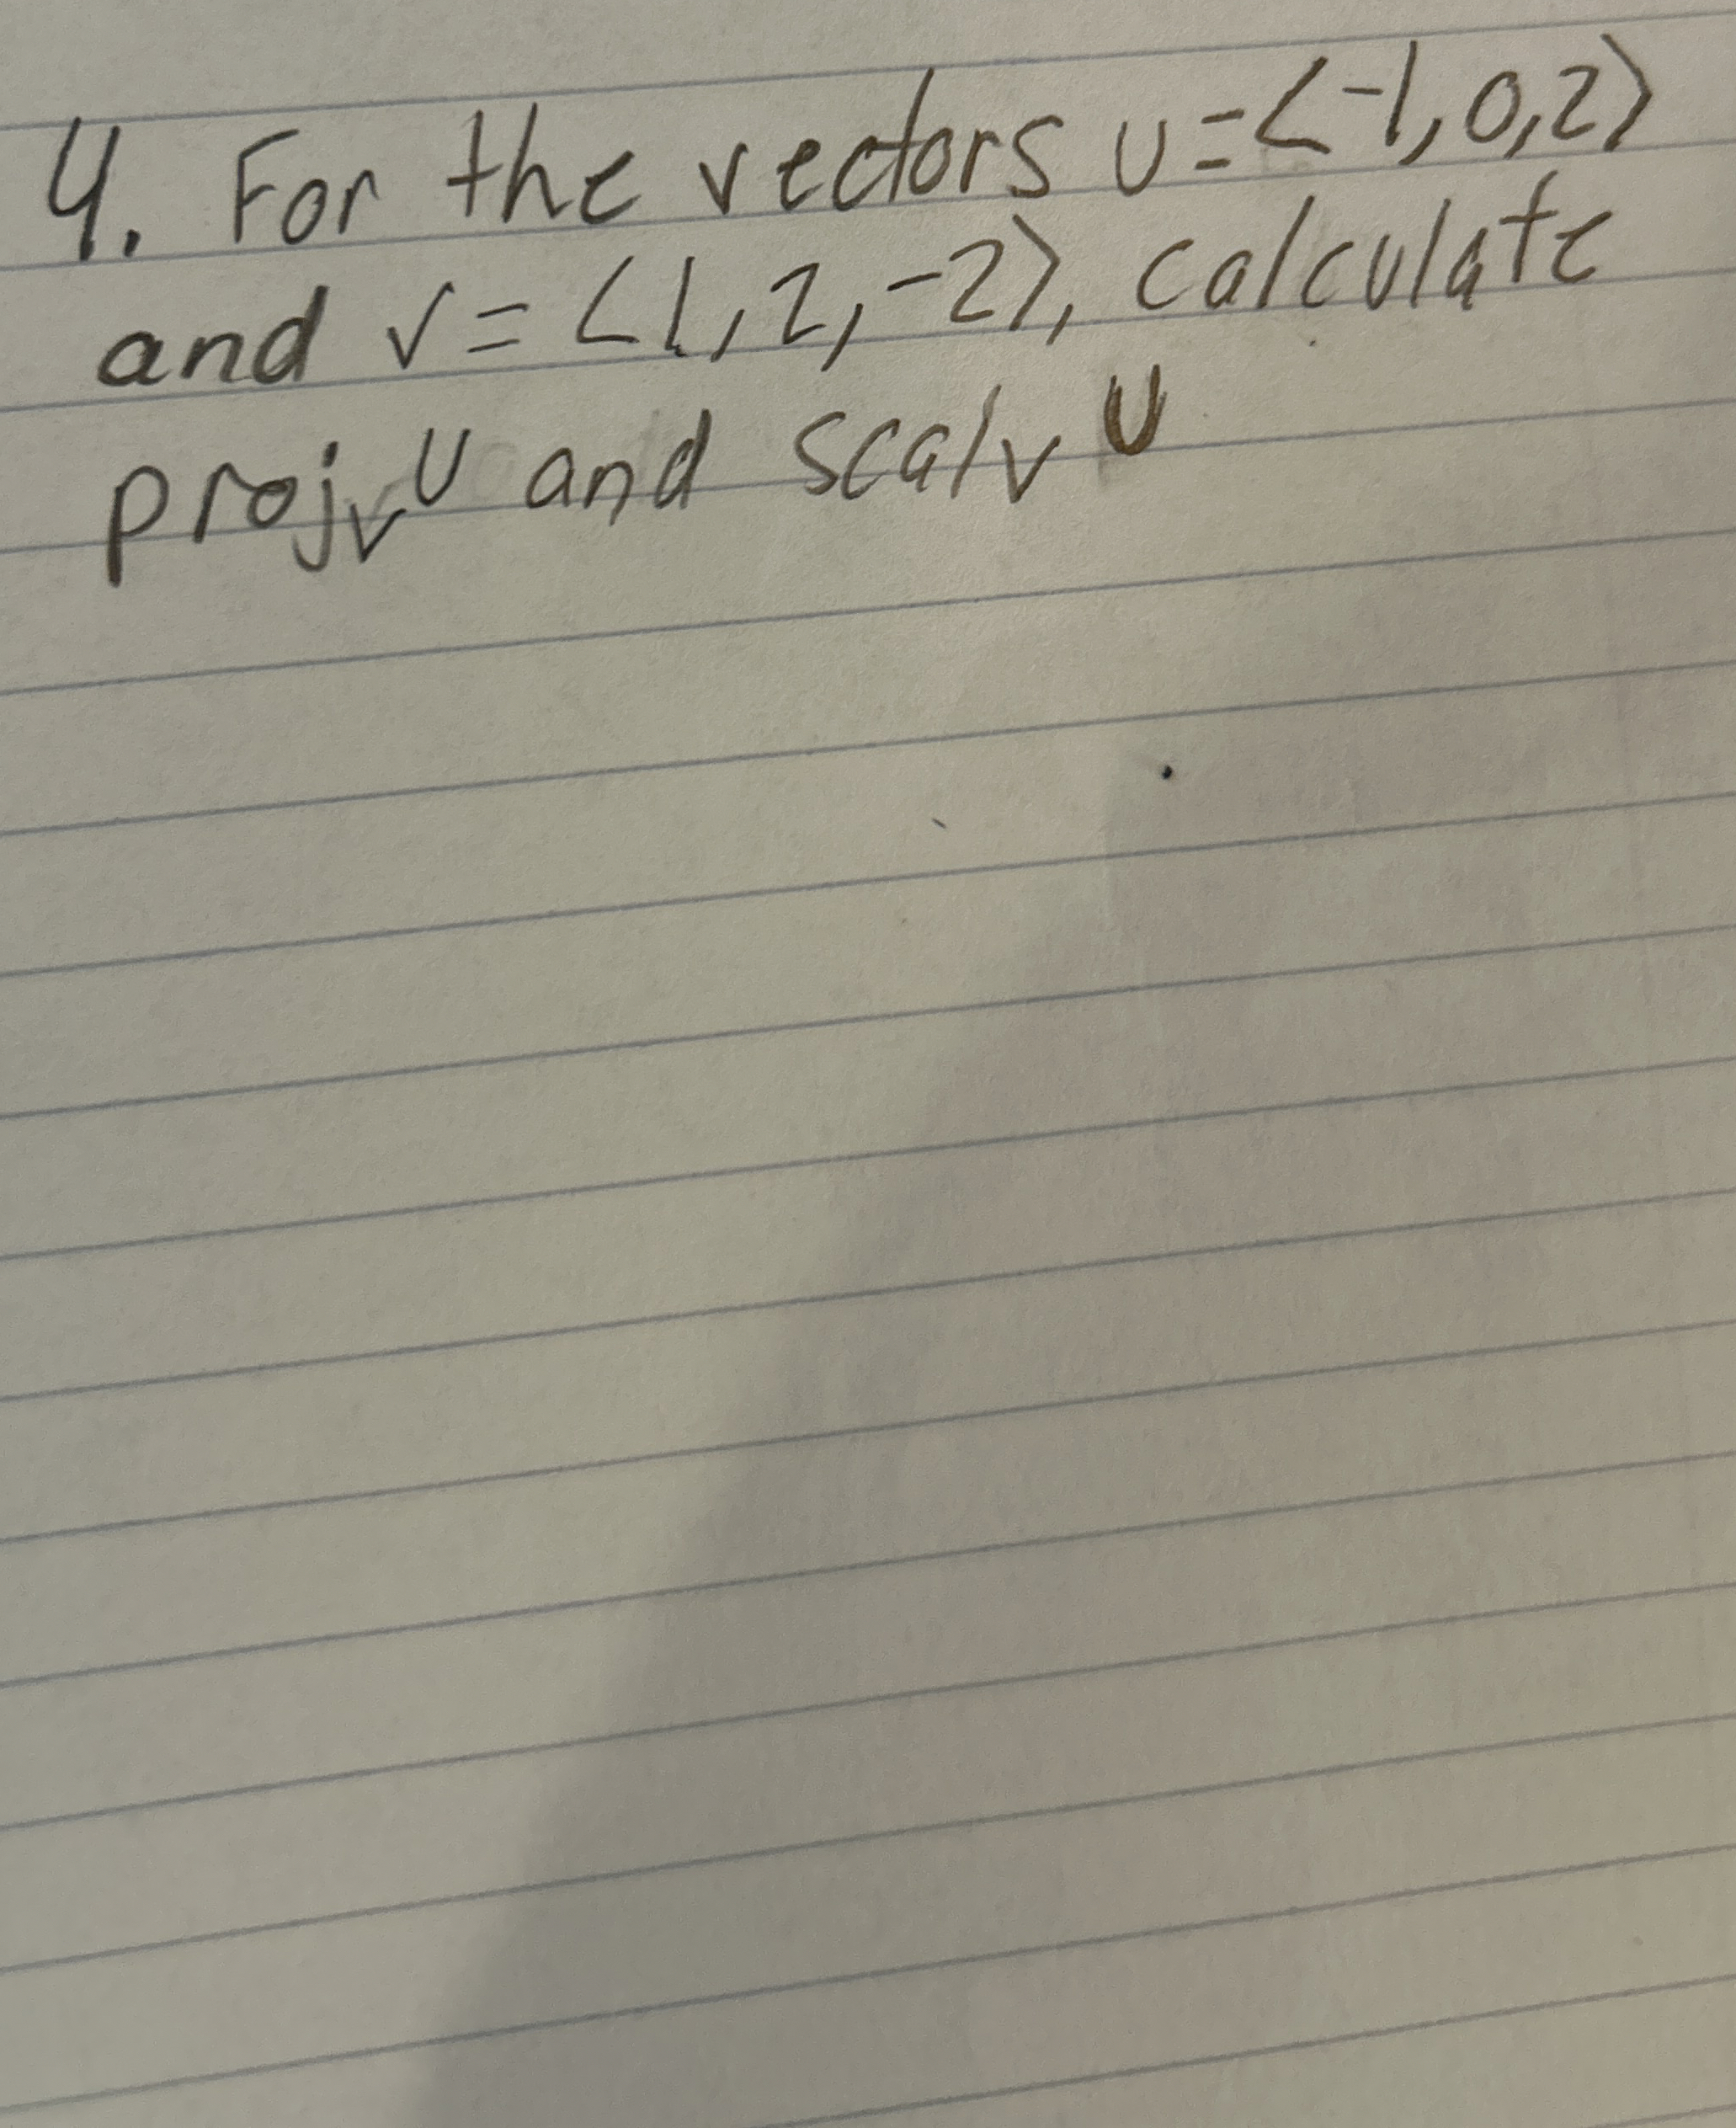 4. For the vectors u=⟨-1,0,2⟩
and v=⟨1,2,-2⟩, calculate
projᵥu and scalᵥu